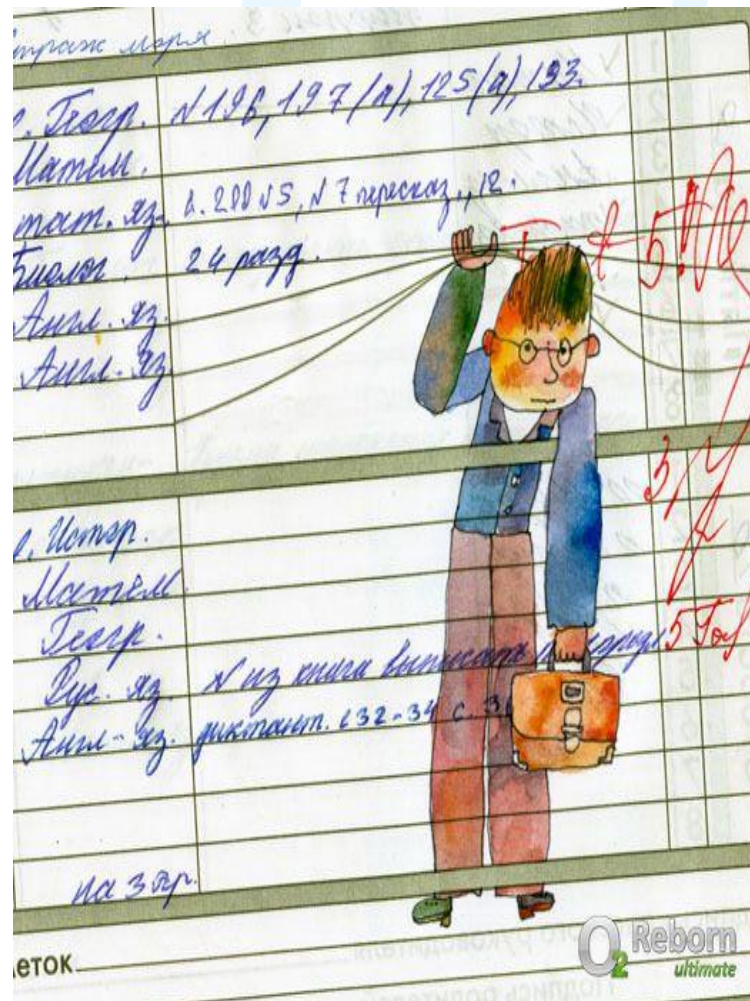 страж моря.
Геогр. №196, 197(а), 125(а), 193.
Матем.
тат. яз. с. 200 №5, №7 пересказ., 12.
Биолог. 24 разд.
Англ. яз.
Англ. яз.
5
3
Истор.
Матем.
Геогр.
Рус. яз. № из книга выписать 5
Англ. яз. диктант. с 32-34 с. 3
на 3 тр.
еток
O2 Reborn
ultimate